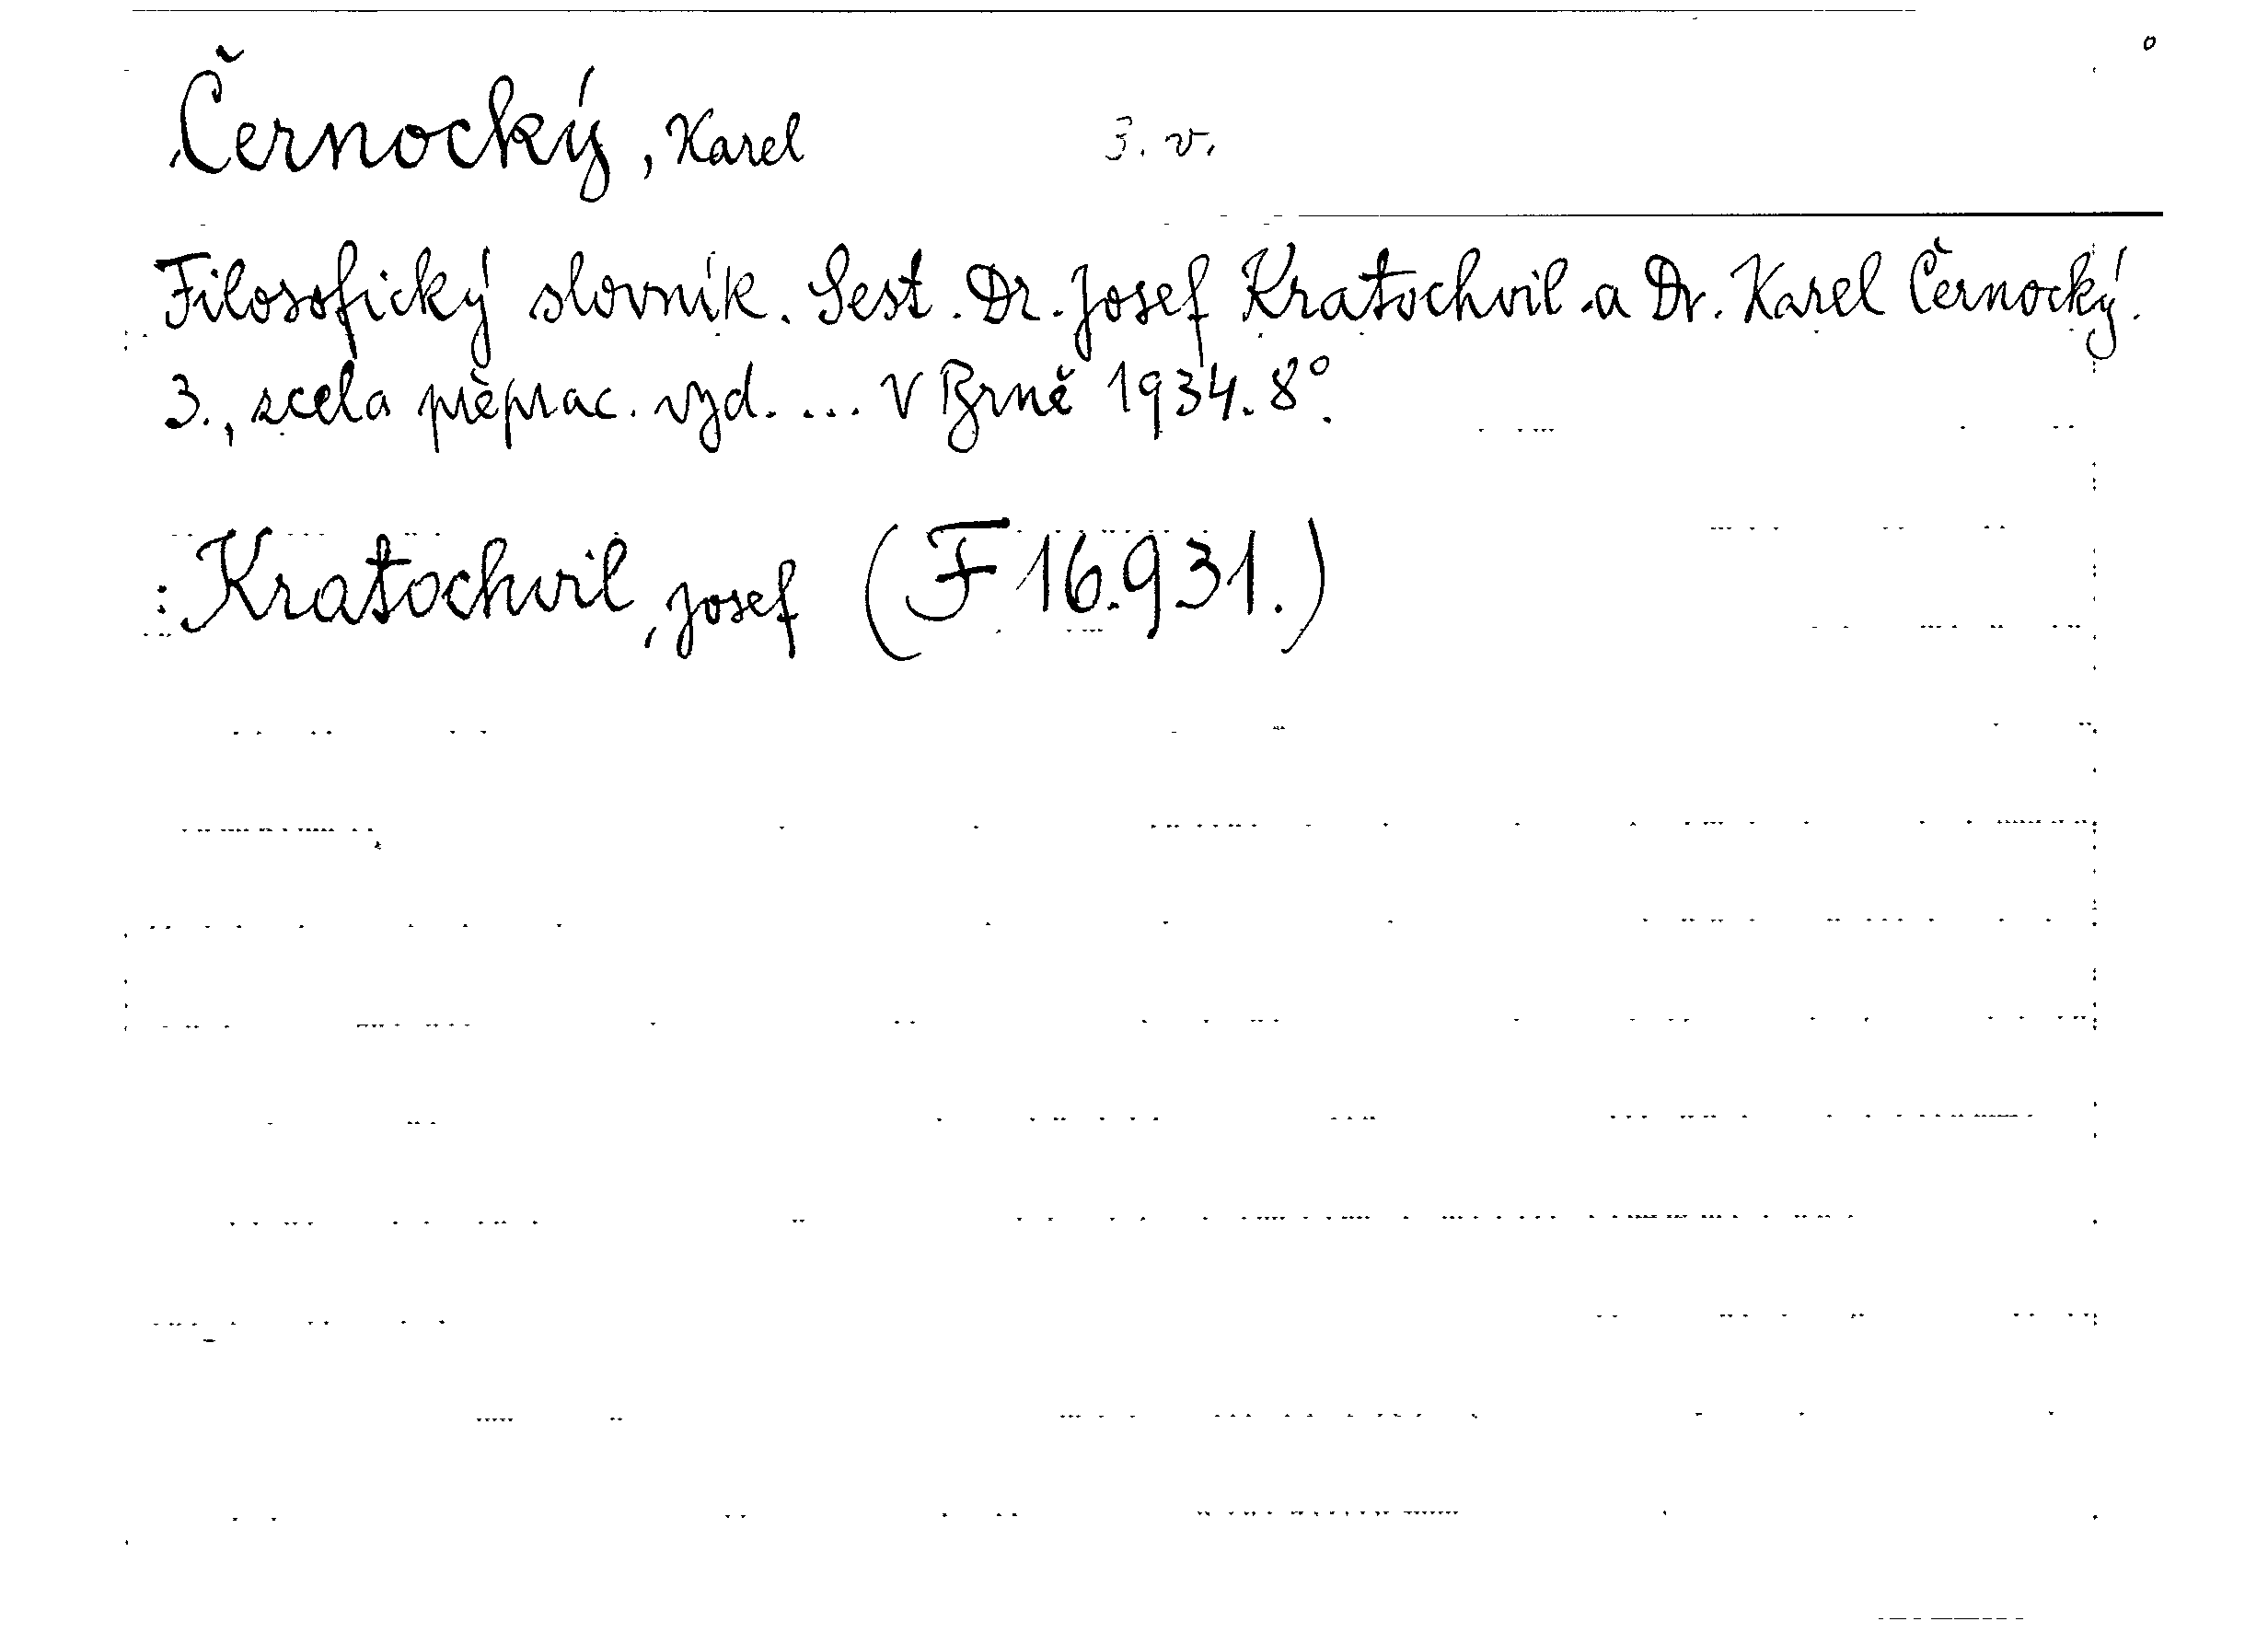 Černocký, Karel 3. v.
Filosofický slovník. Sest. Dr. Josef Kratochvil a Dr. Karel Černocký.
3., zcela přeprac. vyd. ... V Brně 1934. 8°.
: Kratochvil, Josef (F 16.931.)